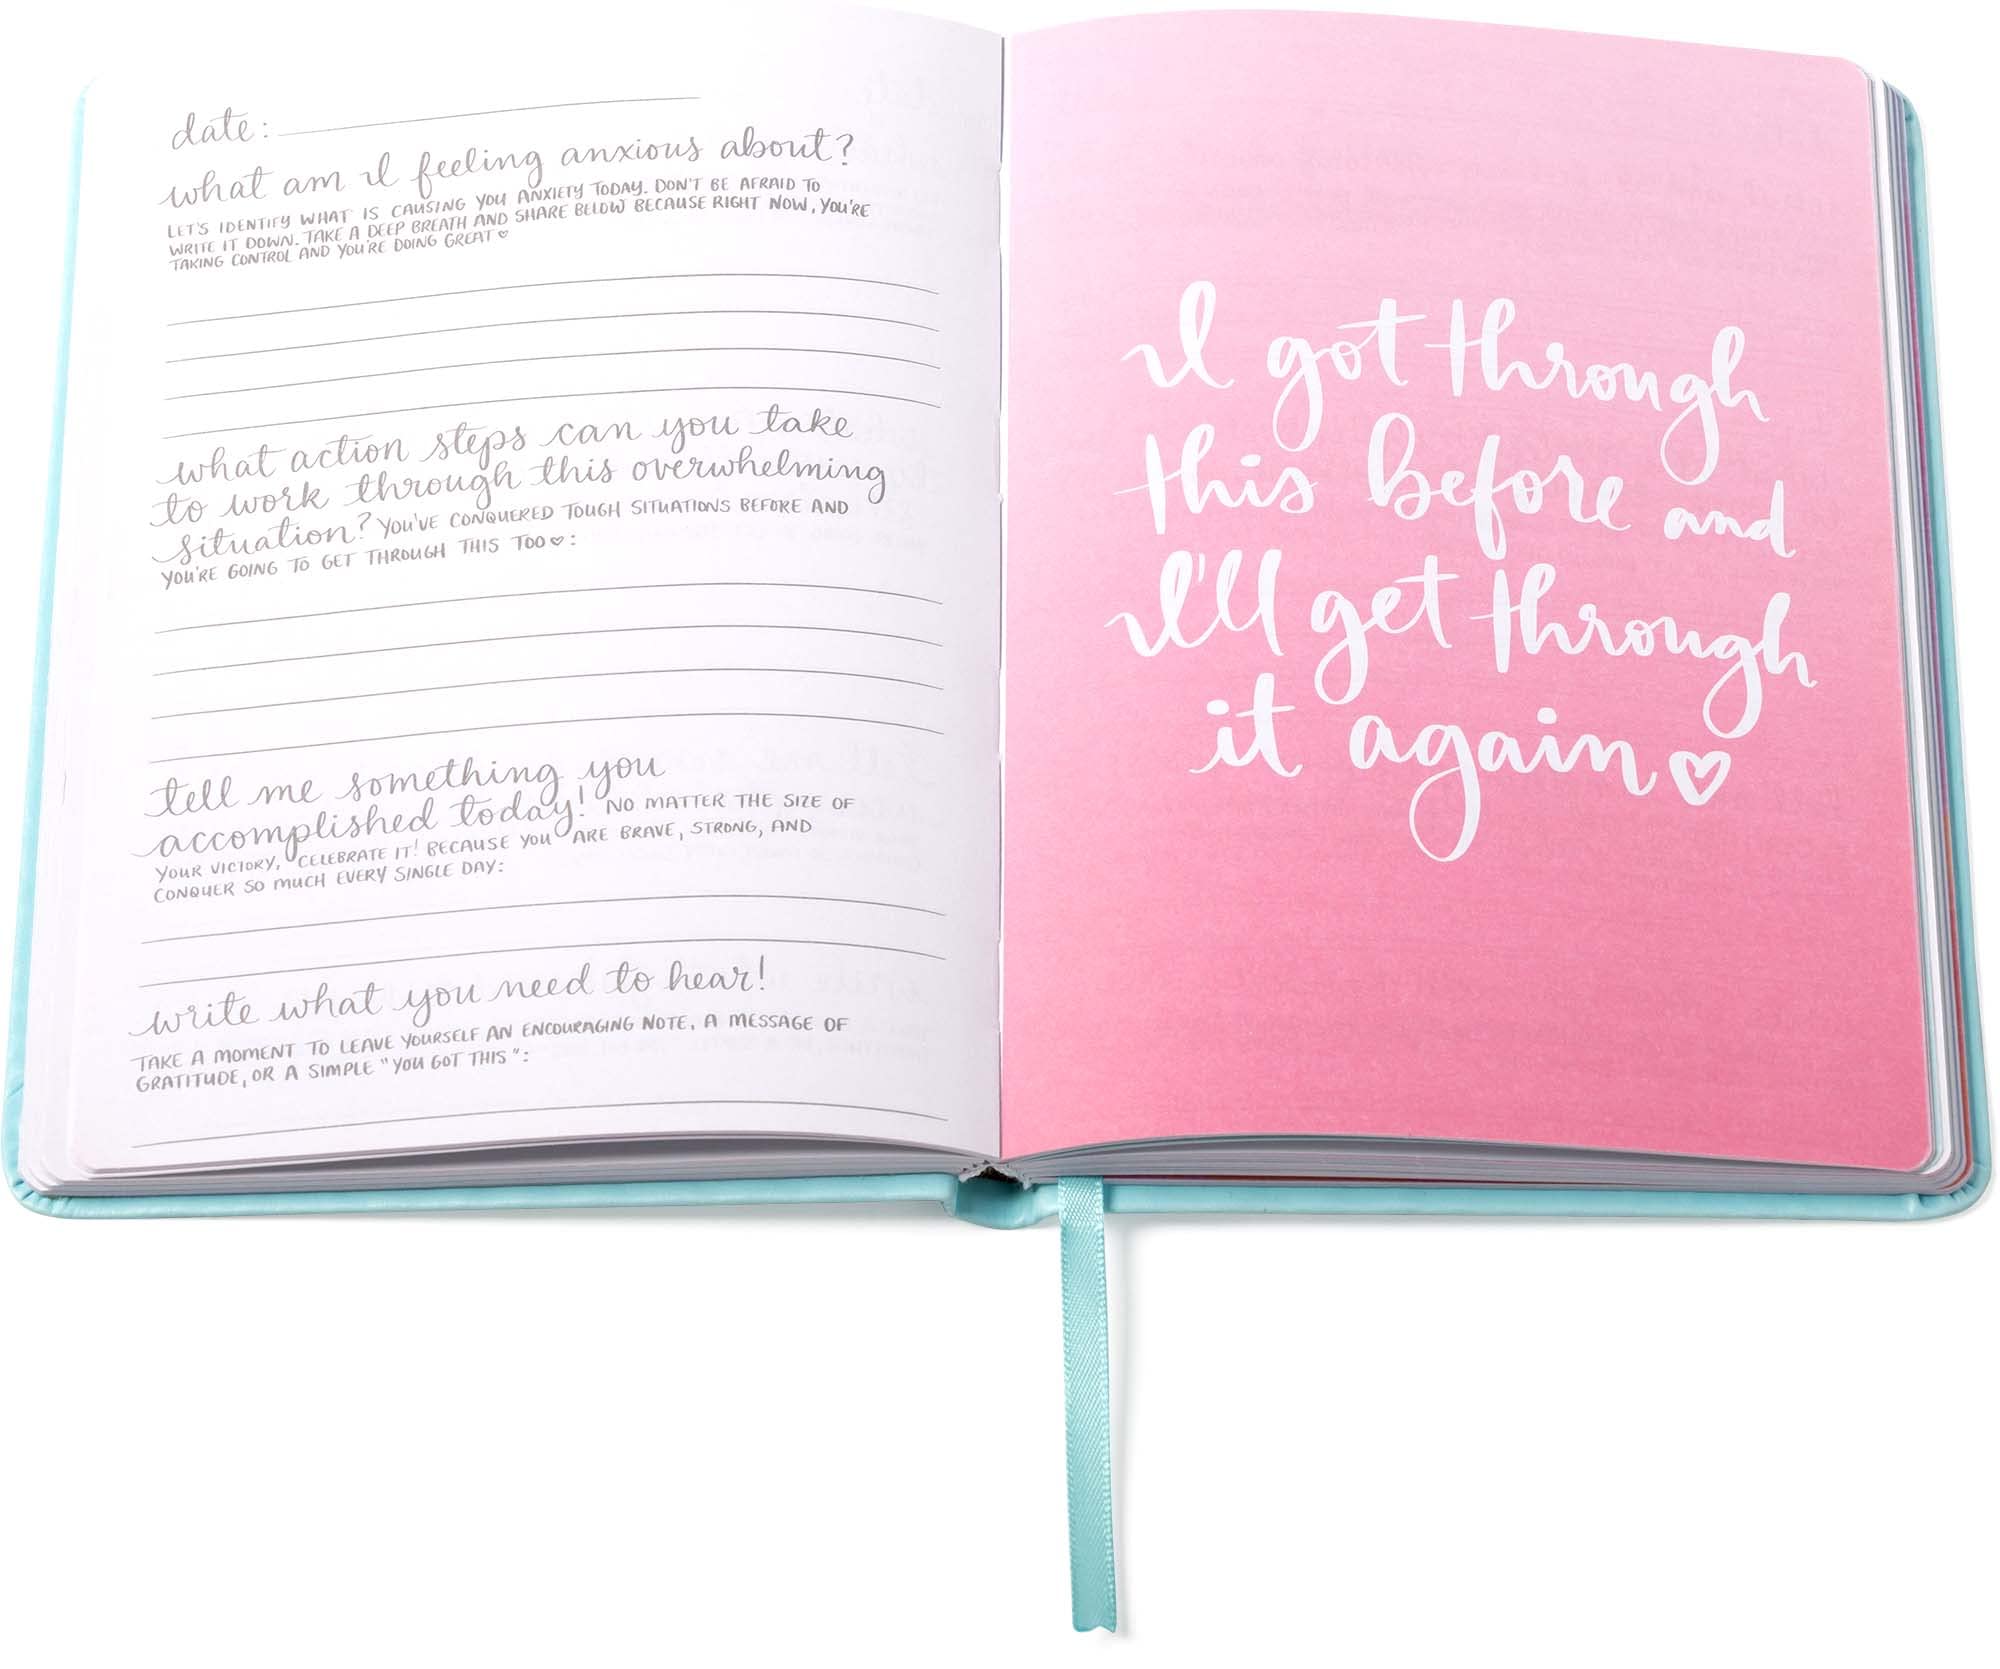 date:
what am I feeling anxious about?
LET'S IDENTIFY WHAT IS CAUSING YOU ANXIETY TODAY. DON'T BE AFRAID TO
WRITE IT DOWN. TAKE A DEEP BREATH AND SHARE BELOW BECAUSE RIGHT NOW, YOU'RE
TAKING CONTROL AND YOU'RE DOING GREAT♡
what action steps can you take
to work through this overwhelming
situation? YOU'VE CONQUERED TOUGH SITUATIONS BEFORE AND
YOU'RE GOING TO GET THROUGH THIS TOO♡:
tell me something you
accomplished today! NO MATTER THE SIZE OF
YOUR VICTORY, CELEBRATE IT! BECAUSE YOU ARE BRAVE, STRONG, AND
CONQUER SO MUCH EVERY SINGLE DAY:
write what you need to hear!
TAKE A MOMENT TO LEAVE YOURSELF AN ENCOURAGING NOTE, A MESSAGE OF
GRATITUDE, OR A SIMPLE "YOU GOT THIS":
I got through
this before and
I'll get through
it again♡